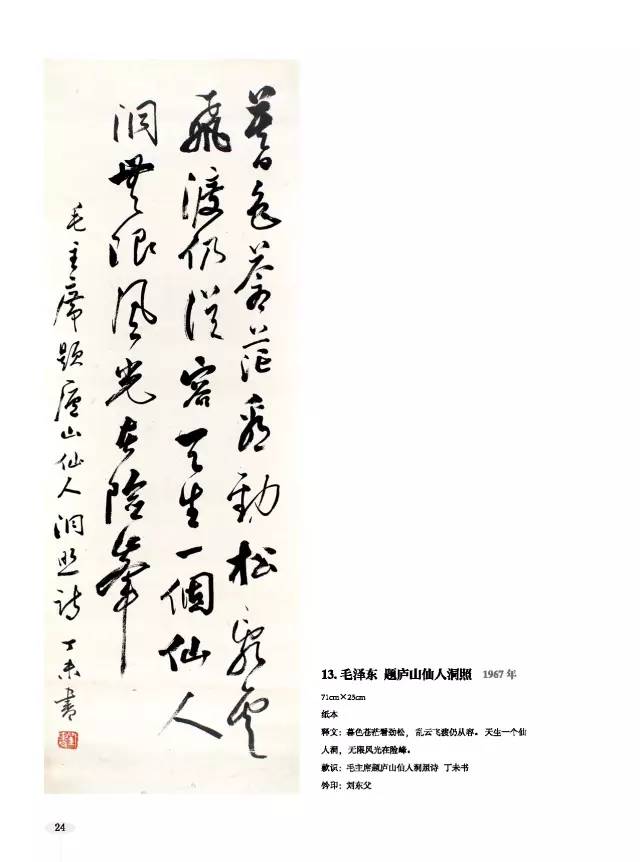 暮色蒼茫看勁松亂雲
飛渡仍從容天生一個仙人
洞無限風光在險峯
毛主席題廬山仙人洞照詩 丁未書
13. 毛泽东 题庐山仙人洞照 1967 年
71cm×23cm
纸本
释文：暮色苍茫看劲松，乱云飞渡仍从容。天生一个仙
人洞，无限风光在险峰。
款识：毛主席题庐山仙人洞照诗 丁未书
钤印：刘东父
24